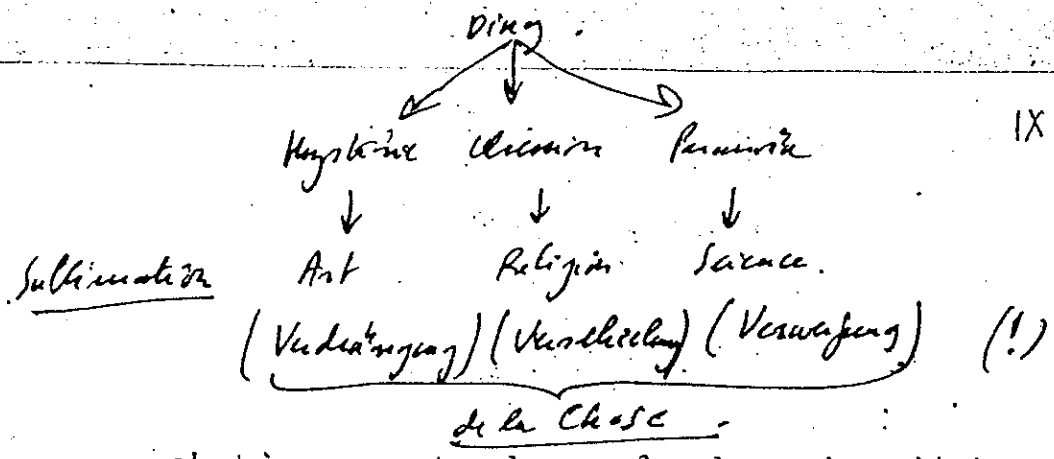 Ding.
IX
Hystérie Obsession Paranoïa
Sublimation Art Religion Science.
(Verdrängung) (Verschiebung) (Verwerfung) (!)
de la Chose.